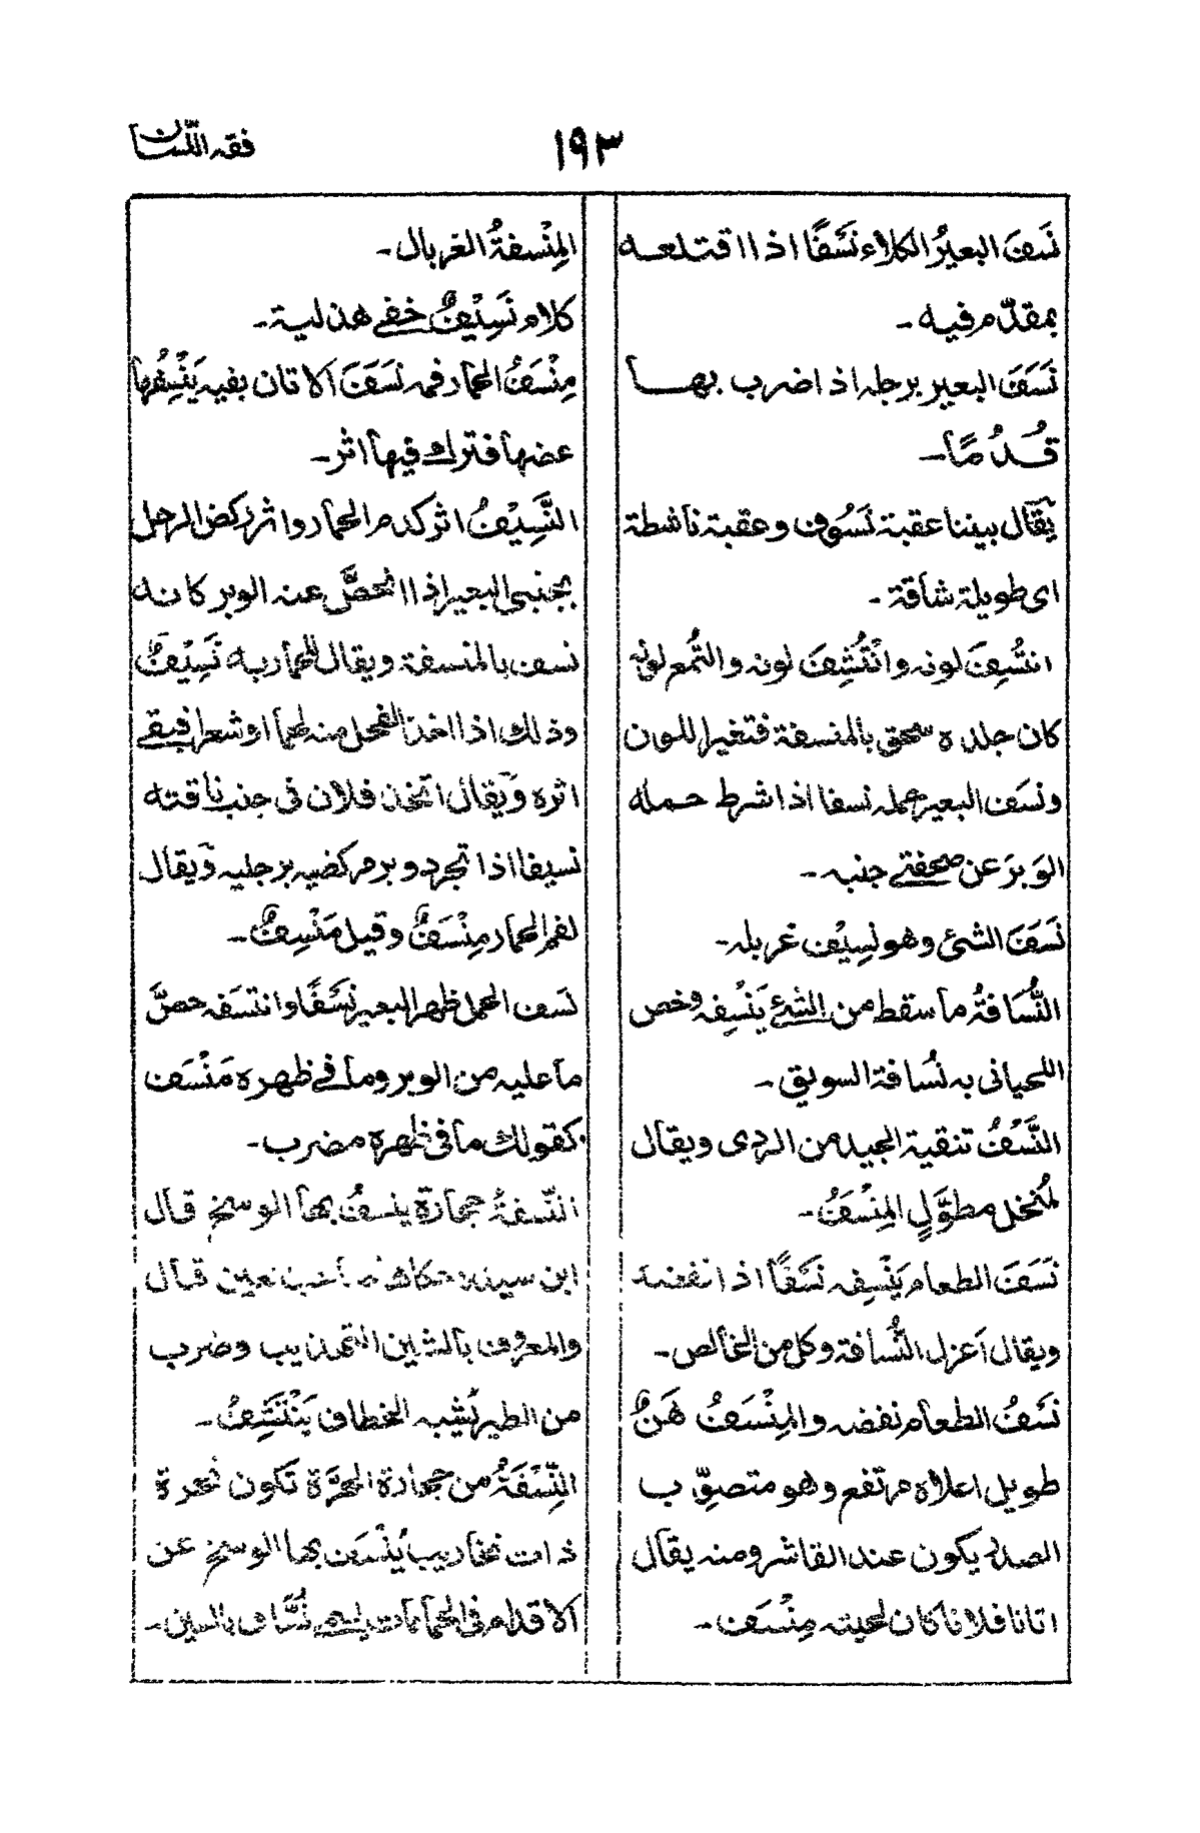 فقه اللّسان
١٩٣
نَسَفَ البعيرُ الكلاء نَسْفًا اذا اقتلعه
بمقدّم فيه -
نَسَفَ البعير برجله اذا ضرب بها
قُدُمًا -
يُقال بيننا عقبة نَسُوف وعقبة ناشطة
اى طويلة شاقة -
انتُسِفَ لونه وانْتُشِفَ لونه والتُمع لونه
كان جلده سحق بالمنسفة فتغير اللون
ونسَف البعيرَ حمله نسفا اذا شرط حمله
الوَبرَ عن صحفتے جنبه -
نَسَفَ الشئ وهو نسِيْف غربله -
النُّسَافةُ ما سقط من الشئ يَنْسِفه وخص
اللحيانى به نُسافة السويق -
النَّسْفُ تنقية الجيد من الردى ويقال
لمُنخل مطوَّلٍ المِنْسَفُ -
نَسَفَ الطعام يَنْسِفه نَسْفًا اذا نفضه
ويقال اَعزل النُّسافة وكل من الخالص -
نَسْفُ الطعام نفضه والمِنْسَفُ هَنٌ
طويل اعلاه مرتفع وهو متصوّب
الصدر يكون عند القاشر ومنه يقال
اتانا فلان كان لحيته مِنْسَف -
المِنْسفةُ الغربال -
كلام نَسِيْفٌ خفے هذلية -
مِنْسَفُ الحمار فمه نَسَفَ الاتان بفيه يَنْسِفُها
عضها فترك فيها اثر -
النَّسِيْفُ اثر كدم الحمار واثر ركض الرجل
بجنبى البعير اذا انحصَّ عنه الوبر كانه
نسف بالمنسفة ويقال للحمار به نَسِيْفٌ
وذلك اذا اخذ الفحل منه لحما او شعرا فبقے
اثره ويُقال اتخذ فلان فى جنب ناقته
نسيفا اذا تجرد وبر مركضيه برجليه ويُقال
لفم الحمار مِنْسَفٌ وقيل مَنْسِفٌ -
نسَف الحمل ظهر البعير نَسْفًا وانتسَفه حصَّ
ما عليه من الوبر وما فے ظهره مَنْسَف
كقولك ما فى ظهره مضرب -
النّسفةُ حجارة ينسفُ بها الوسخ قال
ابن سيده حكاه صاحب العين قال
والمعروف بالشين التهذيب وضرب
من الطير يُشبه الخطاف يَنْتَسِفُ -
النِّسْفَةُ من حجارة الحرَّة تَكون نخرة
ذات نخاريب يُنْسَف بها الوسخ عن
الاقدام فى الحمامات يسمے نُسَّاف بالسين -